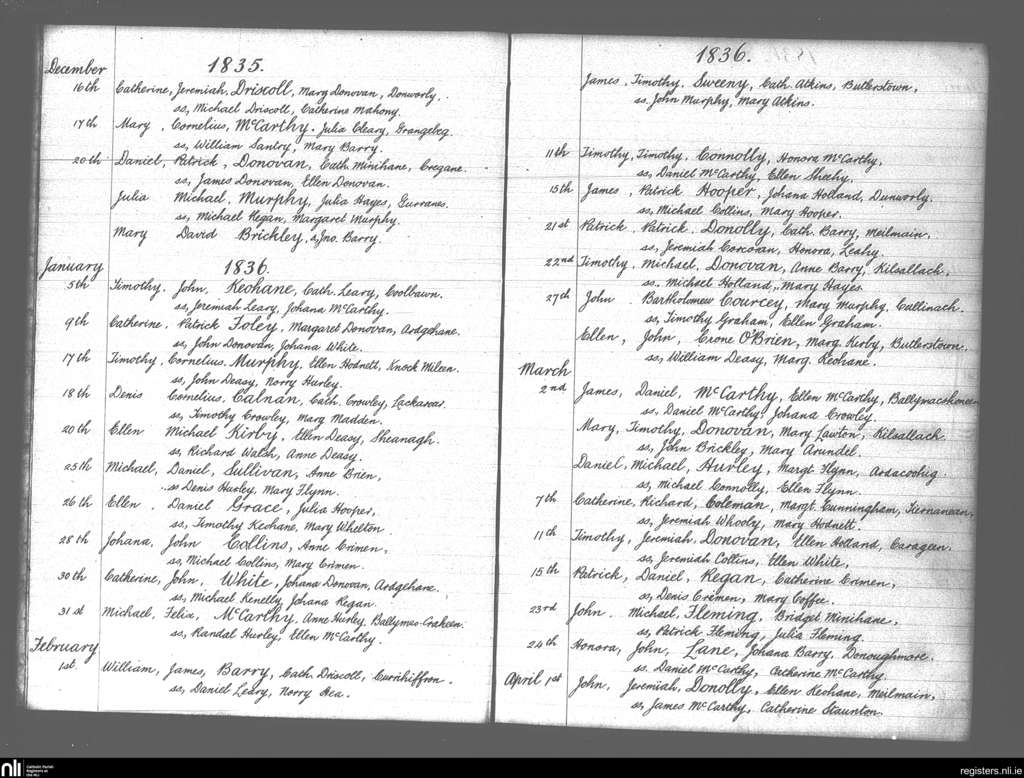 1835.
December
16th Catherine, Jeremiah, Driscoll, Mary Donovan, Donworly.
ss, Michael Driscoll, Catherine Mahony.
17th Mary, Cornelius, McCarthy. Julia Cleary, Grangebeg.
ss, William Santry, Mary Barry.
20th Daniel, Patrick, Donovan, Cath. Minihane, Cregane.
ss, James Donovan, Ellen Donovan.
Julia Michael, Murphy, Julia Hayes, Gurranes.
ss, Michael Regan, Margaret Murphy.
Mary David Brickley, & Jno. Barry.
1836.
January
5th Timothy. John, Keohane, Cath. Leary, Coolbawn.
ss, Jeremiah Leary, Johana McCarthy.
9th Catherine, Patrick Foley, Margaret Donovan, Ardgehane.
ss, John Donovan, Johana White.
17th Timothy, Cornelius, Murphy, Ellen Hodnett, Knock Mileen.
ss, John Deasy, Norry Hurley.
18th Denis Cornelius, Calnan, Cath. Crowley, Lackarour.
ss, Timothy Crowley, Mary Madden.
20th Ellen Michael Kirby, Ellen Deasy, Sheanagh.
ss, Richard Walsh, Anne Deasy.
25th Michael, Daniel, Sullivan, Anne Brien,
ss Denis Hurley, Mary Flynn.
26th Ellen, Daniel Grace, Julia Hooper,
ss, Timothy Keohane, Mary Whelton.
28th Johana, John Collins, Anne Crimen,
ss, Michael Collins, Mary Crimen.
30th Catherine, John, White, Johana Donovan, Ardgehane.
ss, Michael Kenelly, Johana Regan.
31st Michael, Felix, McCarthy, Anne Hurley, Ballymac-Crakeen.
ss, Randal Hurley, Ellen McCarthy.
February
1st. William, James, Barry, Cath. Driscoll, Curnhiffron.
ss, Daniel Leary, Norry Hea.
1836.
James, Timothy, Sweeny, Cath. Atkins, Butlerstown,
ss. John Murphy, Mary Atkins.
11th Timothy, Timothy, Connolly, Honora McCarthy,
ss, Daniel McCarthy, Ellen Sheehy.
15th James, Patrick Hooper, Johana Holland, Dunworly.
ss, Michael Collins, Mary Hooper.
21st Patrick, Patrick, Donolly, Cath. Barry, Meilmain,
ss, Jeremiah Corcoran, Honora, Leahy.
22nd Timothy, Michael, Donovan, Anne Barry, Kilsallach,
ss. Michael Holland, Mary Hayes.
27th John Bartholomew Courcey, Mary Murphy, Cullinach.
ss, Timothy Graham, Ellen Graham.
Ellen, John, Crone O'Brien, Marg. Kirby, Butlerstown,
ss, William Deasy, Marg. Keohane.
March
2nd James, Daniel, McCarthy, Ellen McCarthy,
ss. Daniel McCarthy, Johana Crowley.
Mary, Timothy, Donovan, Mary Lawton, Kilsallach.
ss, John Brickley, Mary Arundel.
Daniel, Michael, Hurley, Margt Flynn, Ardacoohig.
ss, Michael Connolly, Ellen Flynn.
7th Catherine, Richard, Coleman, Margt. Cunningham, Kernanean,
ss, Jeremiah Whooly, Mary Hodnett.
11th Timothy, Jeremiah, Donovan, Ellen Holland, Carageen.
ss, Jeremiah Collins, Ellen White,
15th Patrick, Daniel, Regan, Catherine Crimen,
ss, Denis Crémen, Mary Coffee.
23rd John, Michael, Fleming, Bridget Minihane,
ss, Patrick Fleming, Julia Fleming.
24th Honora, John, Lane, Johana Barry, Donoughmore.
ss. Daniel McCarthy, Catherine McCarthy.
April 1st John, Jeremiah, Donolly, Ellen Keohane, Meilmain,
ss, James McCarthy, Catherine Staunton.
nli Catholic Parish Registers at the NLI
registers.nli.ie